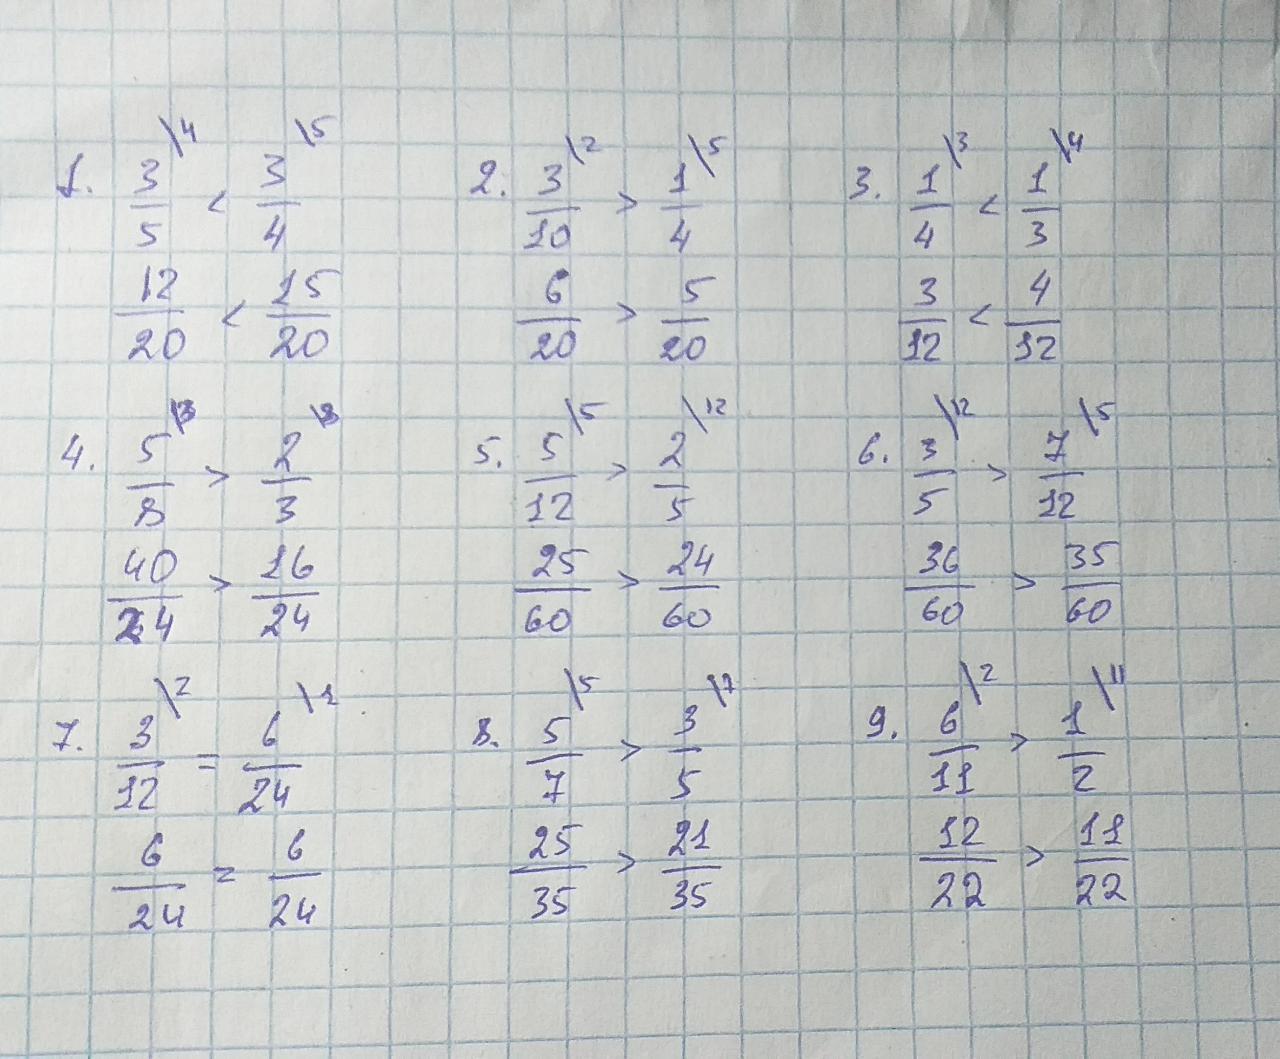 1. 3/5 \4 < 3/4 \5
12/20 < 15/20
2. 3/10 \2 > 1/4 \5
6/20 > 5/20
3. 1/4 \3 < 1/3 \4
3/12 < 4/12
4. 5/8 \3 > 2/3 \8
40/24 > 16/24
5. 5/12 \5 > 2/5 \12
25/60 > 24/60
6. 3/5 \12 > 7/12 \5
36/60 > 35/60
7. 3/12 \2 = 6/24 \1
6/24 = 6/24
8. 5/7 \5 > 3/5 \7
25/35 > 21/35
9. 6/11 \2 > 1/2 \11
12/22 > 11/22